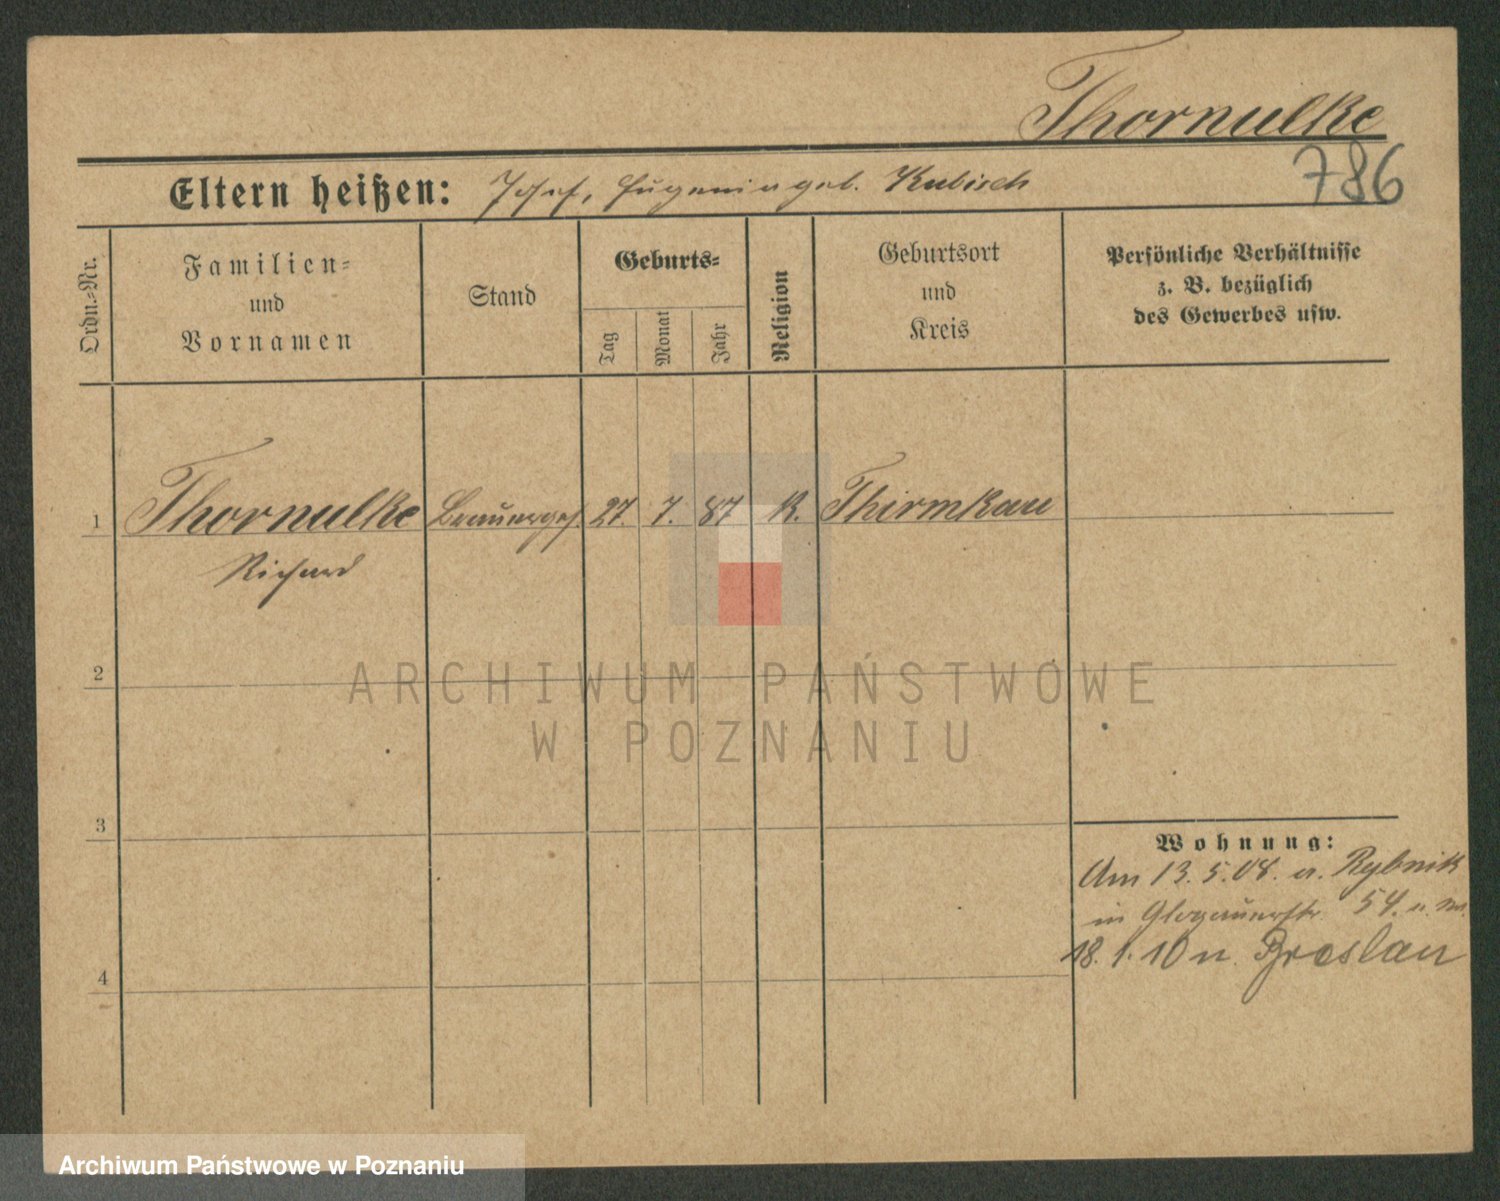 Thornulke
786
Eltern heißen: Josef, Eugenia geb. Kubisch
Ordn.-Nr.
Familien-
und
Vornamen
Stand
Geburts-
Tag
Monat
Jahr
Religion
Geburtsort
und
Kreis
Persönliche Verhältnisse
z. B. bezüglich
des Gewerbes usw.
1 Thornulke Brauerges. 27. 7. 87 K. Thirmkau
Richard
2
3
4
Wohnung:
Am 13. 5. 08. a. Rybnik
in Glogauerstr 54. u. am
18. 1. 10 n. Breslau
ARCHIWUM PAŃSTWOWE
W POZNANIU
Archiwum Państwowe w Poznaniu